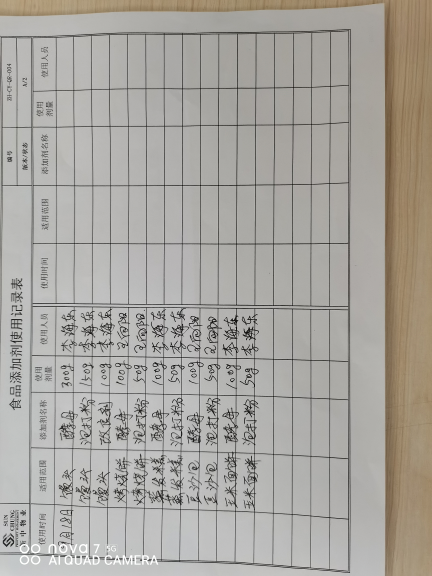 SUN CHUNG
食品添加剂使用记录表
编号 ZH-CY-QR-004
版本/状态 A/2
使用时间 适用范围 添加剂名称 使用剂量 使用人员 使用时间 适用范围 添加剂名称 使用剂量 使用人员
月18日 馒头 酵母 300g 李海东
馒头 泡打粉 150g 李海东
馒头 改良剂 100g 李海东
烤烧饼 酵母 100g 王向阳
烤烧饼 泡打粉 50g 王向阳
蒸发糕 酵母 100g 李海东
蒸发糕 泡打粉 50g 李海东
豆沙包 酵母 100g 王向阳
豆沙包 泡打粉 50g 王向阳
玉米面饼 酵母 100g 李海东
玉米面饼 泡打粉 50g 李海东
nova 7 5G
AI QUAD CAMERA